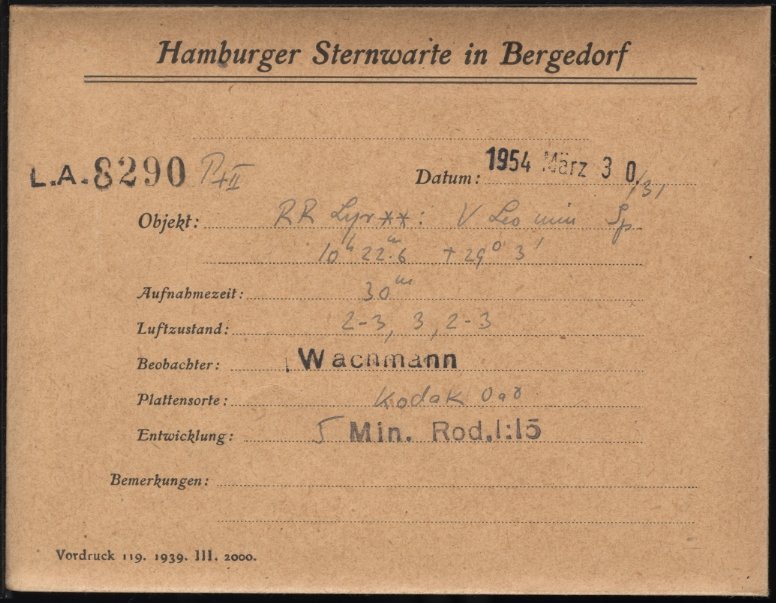 Hamburger Sternwarte in Bergedorf
L.A. 8290 P+II Datum: 1954 März 30./31
Objekt: RR Lyr **: V Leo min Sp
10h 22m.6 +29° 3'
Aufnahmezeit: 30m
Luftzustand: 2-3, 3, 2-3
Beobachter: Wachmann
Plattensorte: Kodak 0a0
Entwicklung: 5 Min. Rod. 1:15
Bemerkungen:
Vordruck 119. 1939. III. 2000.